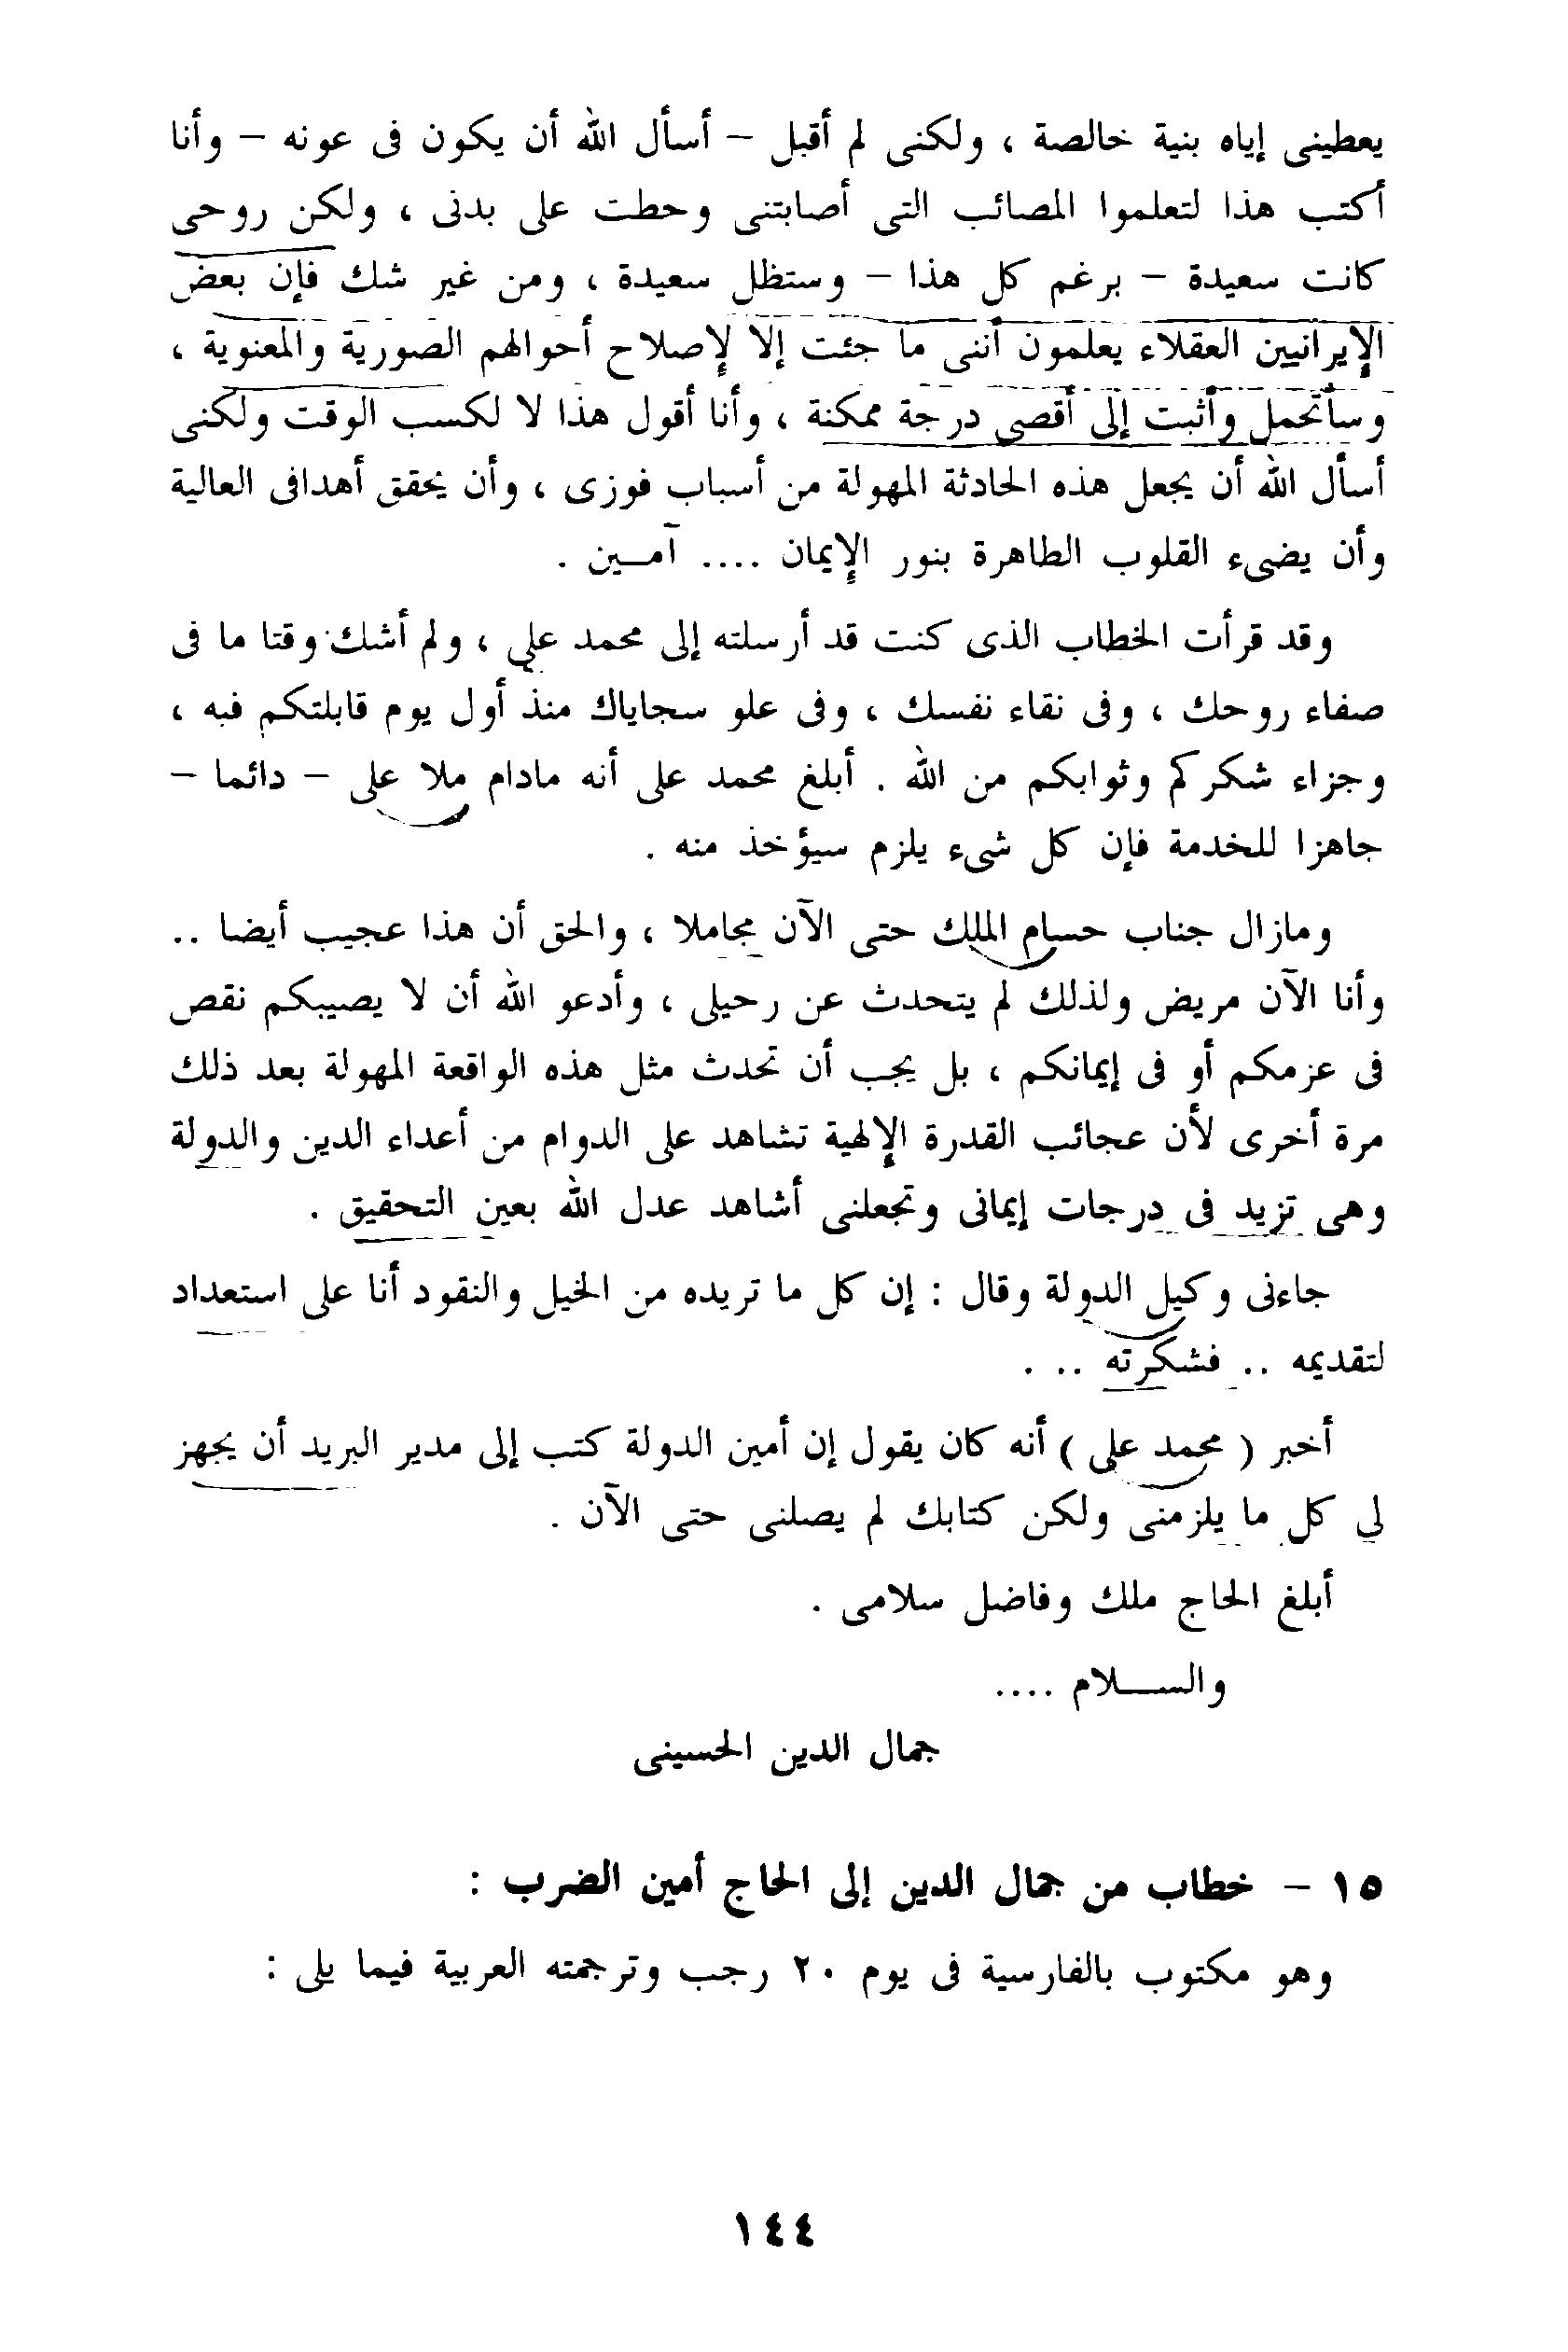 يعطينى إياه بنية خالصة ، ولكنى لم أقبل – أسأل الله أن يكون فى عونه – وأنا
أكتب هذا لتعلموا المصائب التى أصابتنى وحطت على بدنى ، ولكن روحى
كانت سعيدة – برغم كل هذا – وستظل سعيدة ، ومن غير شك فإن بعض
الإيرانيين العقلاء يعلمون أننى ما جئت إلا لإصلاح أحوالهم الصورية والمعنوية ،
وسأتحمل وأثبت إلى أقصى درجة ممكنة ، وأنا أقول هذا لا لكسب الوقت ولكنى
أسأل الله أن يجعل هذه الحادثة المهولة من أسباب فوزى ، وأن يحقق أهدافى العالية
وأن يضىء القلوب الطاهرة بنور الإيمان .... آمـين .
وقد قرأت الخطاب الذى كنت قد أرسلته إلى محمد على ، ولم أشك وقتا ما فى
صفاء روحك ، وفى نقاء نفسك ، وفى علو سجاياك منذ أول يوم قابلتكم فبه ،
وجزاء شكركم وثوابكم من الله . أبلغ محمد على أنه مادام ملا على – دائما –
جاهزا للخدمة فإن كل شىء يلزم سيؤخذ منه .
ومازال جناب حسام الملك حتى الآن مجاملا ، والحق أن هذا عجيب أيضا ..
وأنا الآن مريض ولذلك لم يتحدث عن رحيلى ، وأدعو الله أن لا يصيبكم نقص
فى عزمكم أو فى إيمانكم ، بل يجب أن تحدث مثل هذه الواقعة المهولة بعد ذلك
مرة أخرى لأن عجائب القدرة الإلهية تشاهد على الدوام من أعداء الدين والدولة
وهى تزيد فى درجات إيمانى وتجعلنى أشاهد عدل الله بعين التحقيق .
جاءنى وكيل الدولة وقال : إن كل ما تريده من الخيل والنقود أنا على استعداد
لتقديمه .. فشكرته .. .
أخبر ( محمد على ) أنه كان يقول إن أمين الدولة كتب إلى مدير البريد أن يجهز
لى كل ما يلزمنى ولكن كتابك لم يصلنى حتى الآن .
أبلغ الحاج ملك وفاضل سلامى .
والســلام ....
جمال الدين الحسينى
١٥ – خطاب من جمال الدين إلى الحاج أمين الضرب :
وهو مكتوب بالفارسية فى يوم ٢٠ رجب وترجمته العربية فيما يلى :
١٤٤